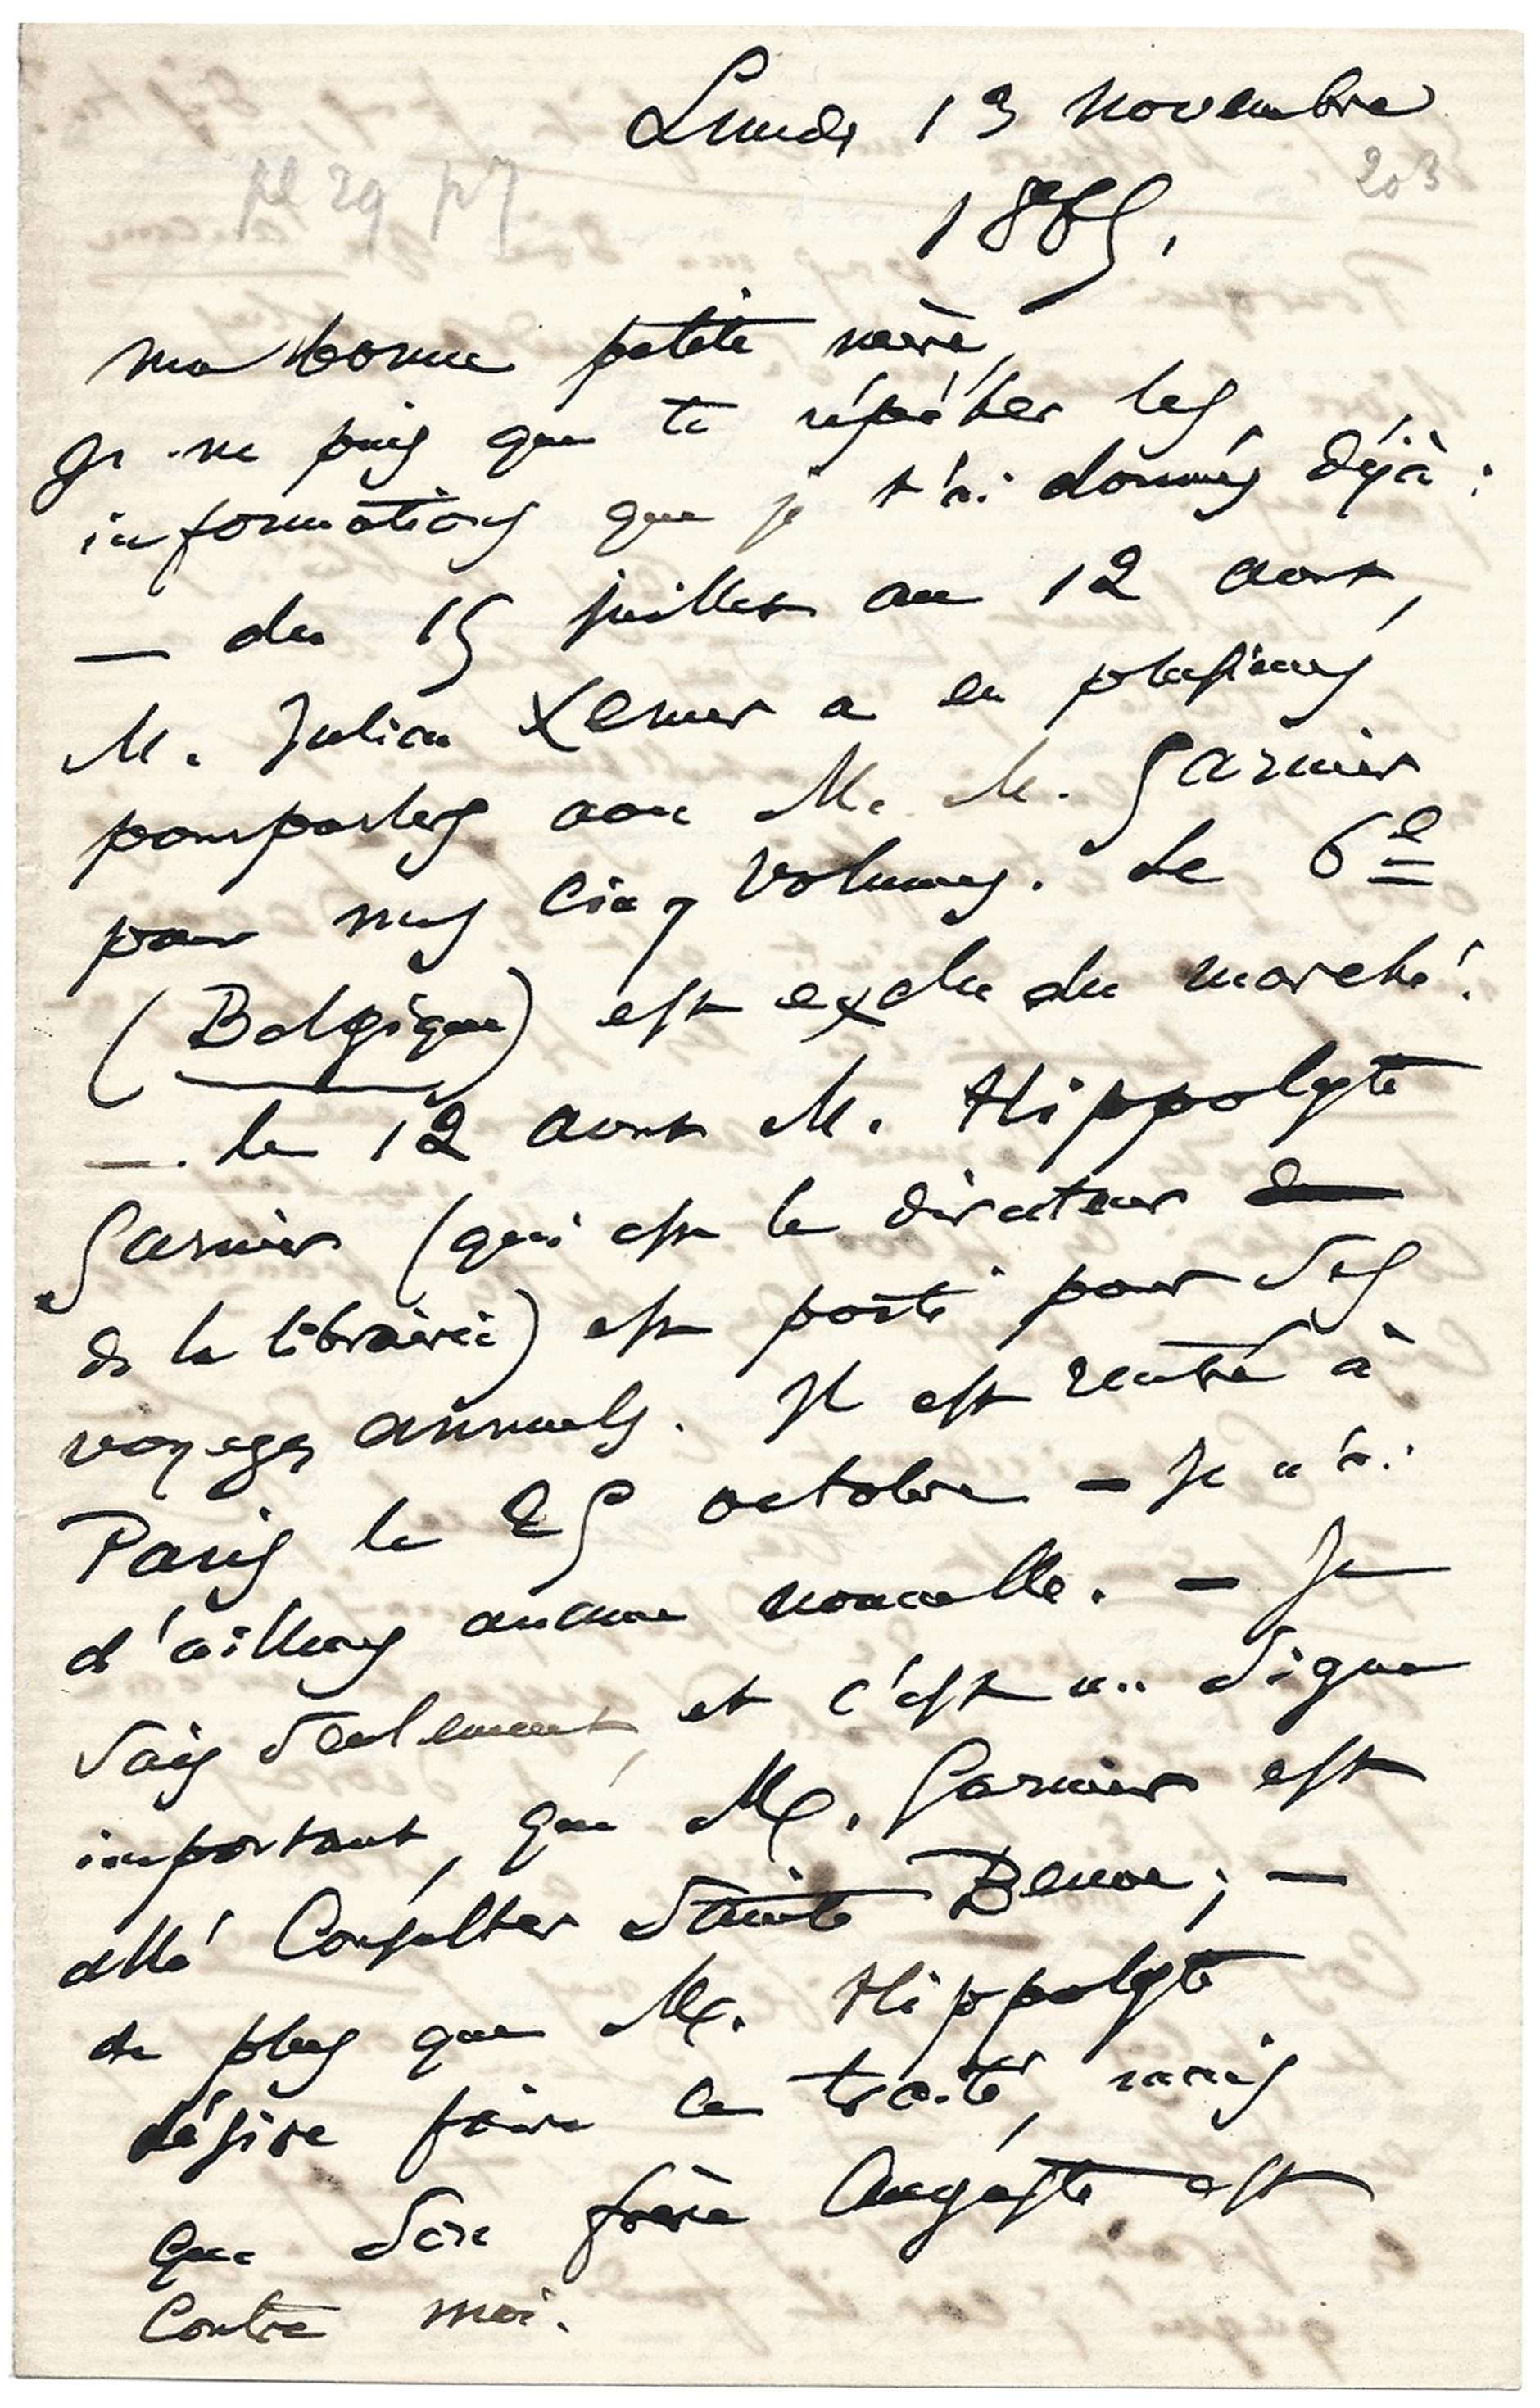 Lundi 13 novembre
203
pl 29 p7
1865.
ma bonne petite mère,
Je ne puis que te répéter les
informations que je t'ai données déjà :
— du 15 juillet au 12 aout,
M. Julien Lemer a eu plusieurs
pourparlers avec M. M. Garnier
pour mes cinq volumes. Le 6e
(Belgique) est exclu du marché.
— le 12 aout M. Hippolyte
Garnier (qui est le directeur
de la librairie) est parti pour ses
voyages annuels. Il est rentré à
Paris le 25 octobre — Je n'ai
d'ailleurs aucune nouvelle. — Je
sais seulement, et c'est un signe
important, que M. Garnier est
allé Consulter Sainte Beuve ; —
de plus que M. Hippolyte
désire faire ce traité, mais
que son frère Auguste est
Contre moi.